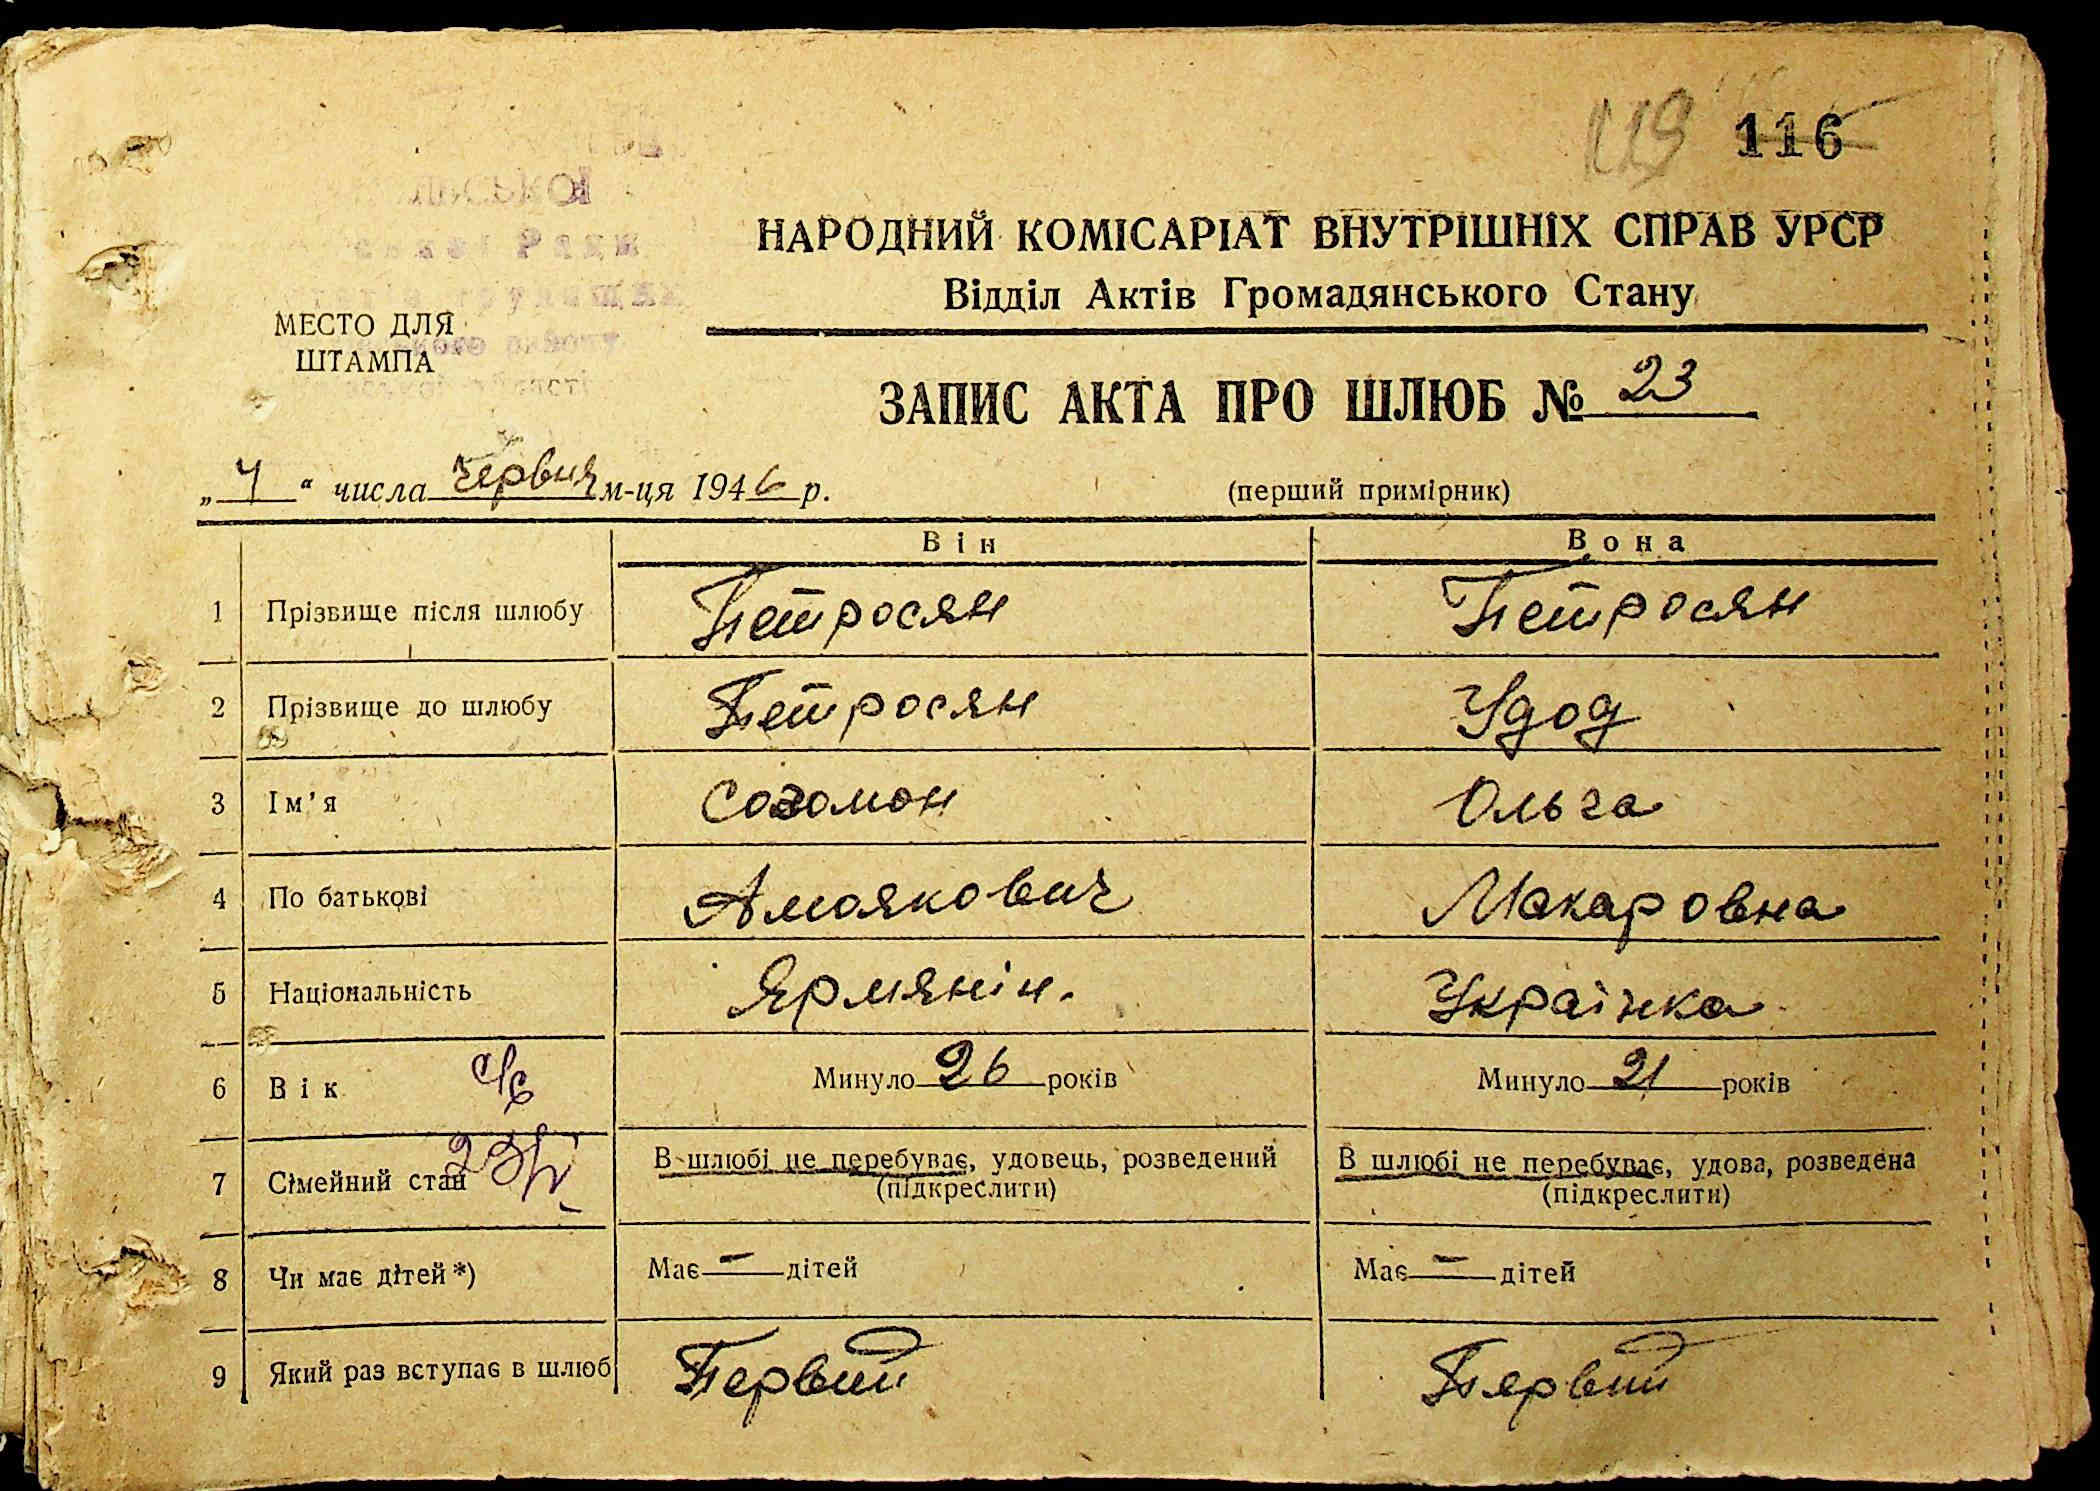 119 116
НАРОДНИЙ КОМІСАРІАТ ВНУТРІШНІХ СПРАВ УРСР
Відділ Актів Громадянського Стану
МЕСТО ДЛЯ
ШТАМПА
ЗАПИС АКТА ПРО ШЛЮБ № 23
„ 4 “ числа Червня м-ця 1946 р. (перший примірник)
Він Вона
1 Прізвище після шлюбу Петросян Петросян
2 Прізвище до шлюбу Петросян Удод
3 Ім’я Согомон Ольга
4 По батькові Амаякович Макаровна
5 Національність Ярмянін. Українка
6 Вік Минуло 26 років Минуло 21 років
7 Сімейний стан В шлюбі не перебуває, удовець, розведений В шлюбі не перебуває, удова, розведена
(підкреслити) (підкреслити)
8 Чи має дітей*) Має — дітей Має — дітей
9 Який раз вступає в шлюб Первий Первий